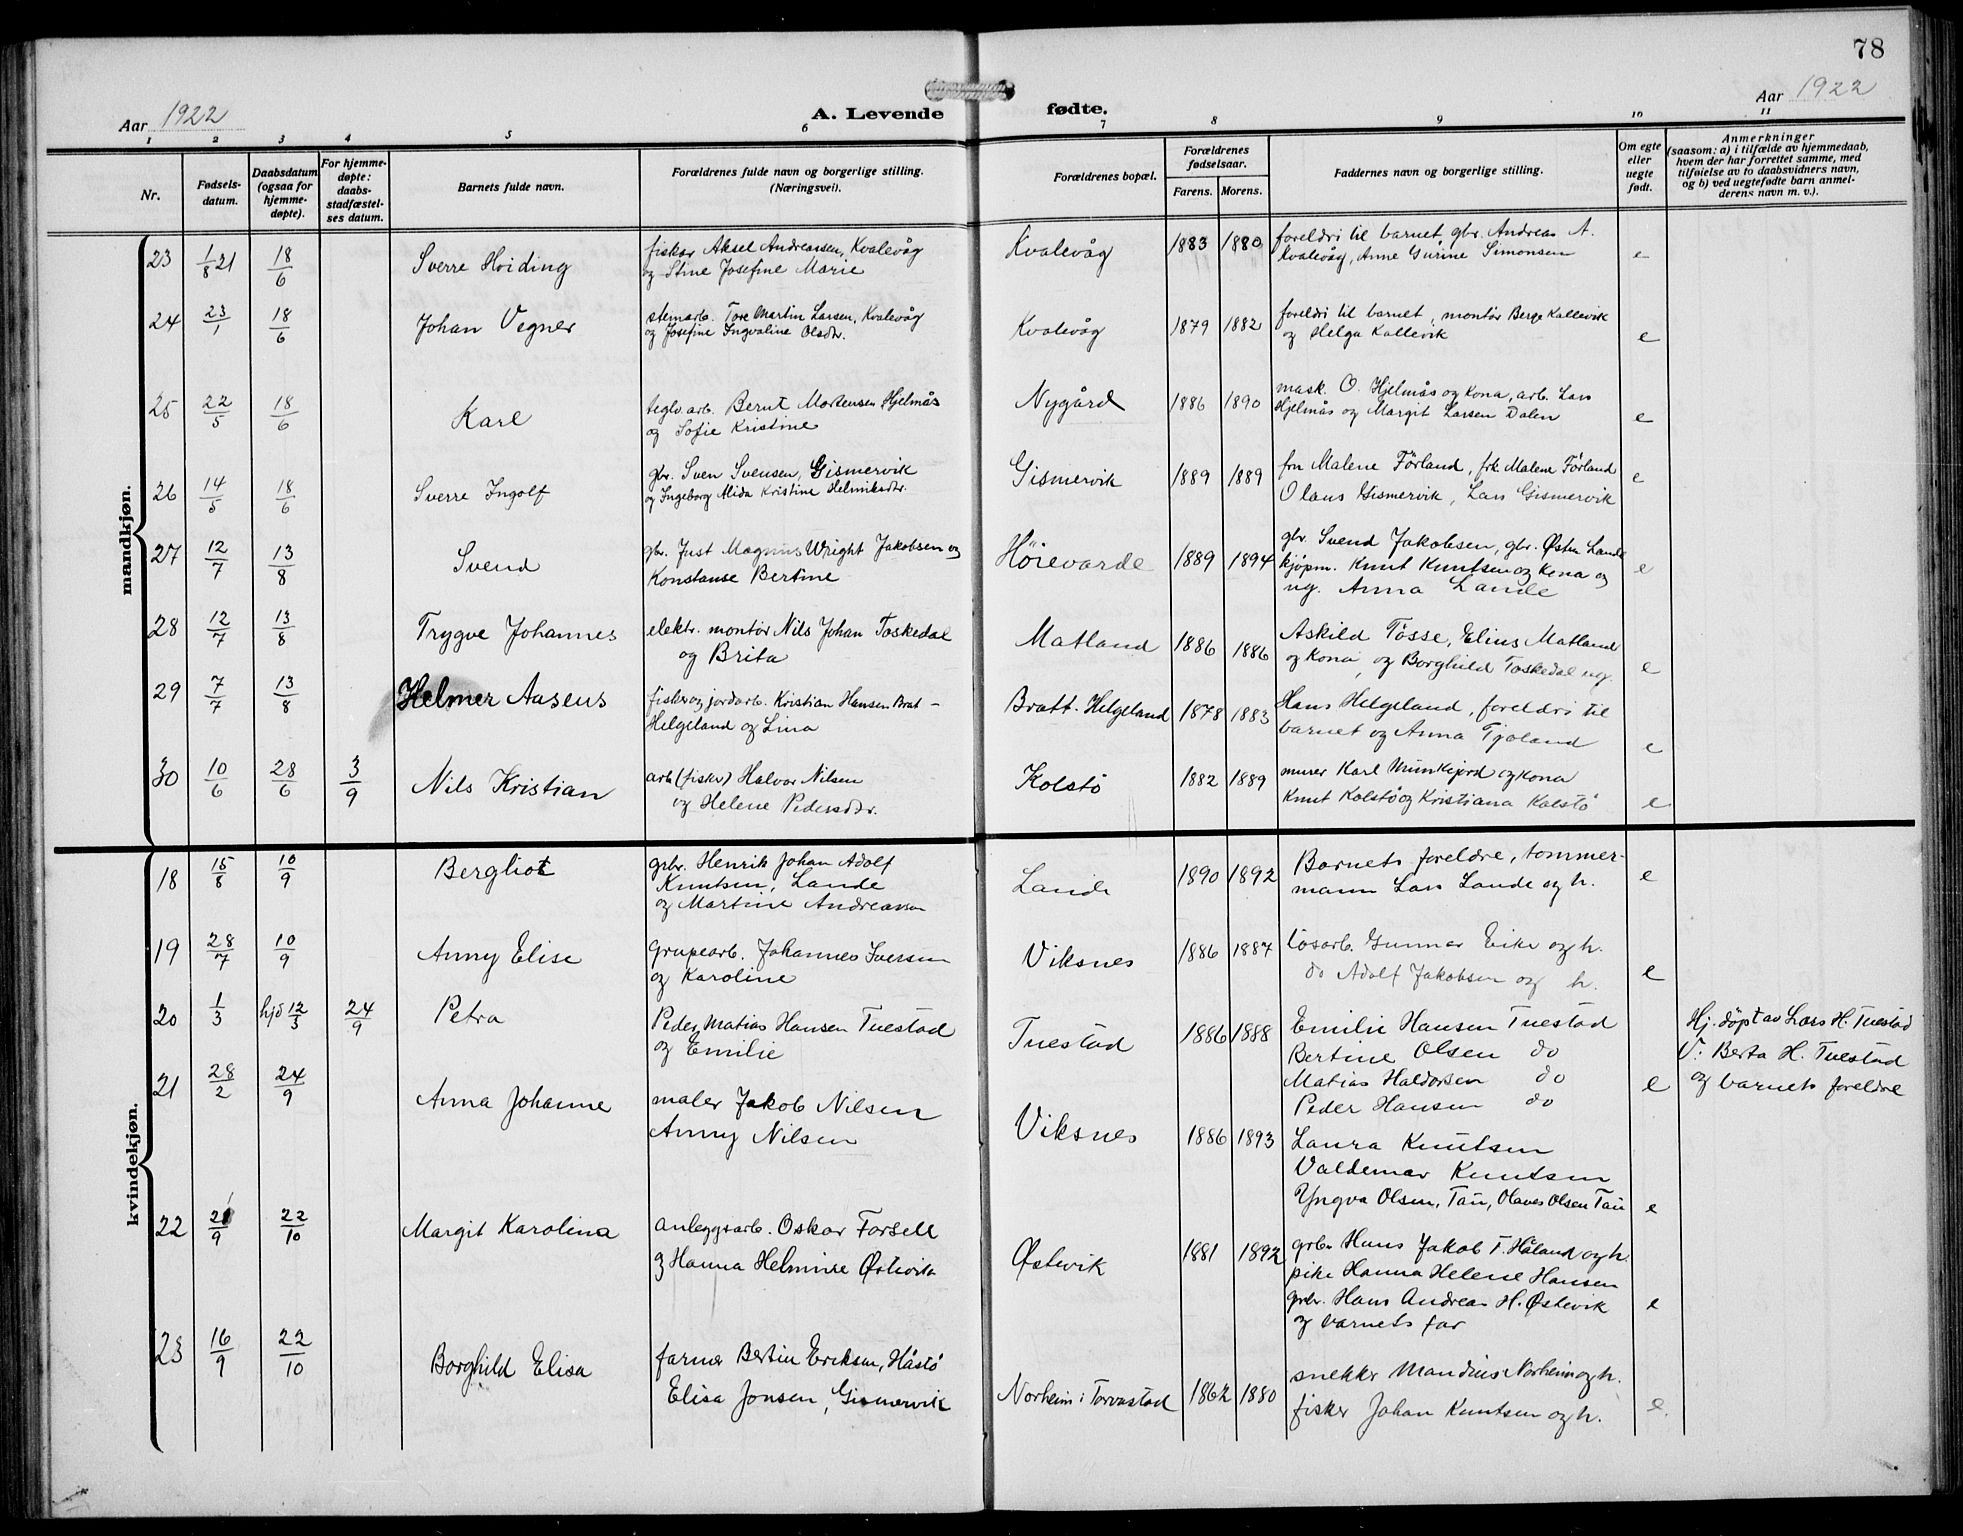 78
Aar 1922
A. Levende fødte.
Aar 1922
1 2 3 4 5 6 7 8 9 10 11
Nr.
Fødsels-
datum.
Daabsdatum
(ogsaa for
hjemme-
døpte).
For hjemme-
døpte:
daabs-
stadfæstel-
ses datum.
Barnets fulde navn.
Forældrenes fulde navn og borgerlige stilling.
(Næringsvei).
Forældrenes bopæl.
Forældrenes
fødselsaar.
Farens. Morens.
Faddernes navn og borgerlig stilling.
Om egte
eller
uegte
født.
Anmerkninger
(saasom: a) i tilfælde av hjemmedaab,
hvem der har forrettet samme, med
tilføielse av to daabsvidners navn,
og b) ved uegtefødte barn anmel-
derens navn m. v.).
mandkjøn.
23 1/8 21 18/6 Sverre Hoiding
fisker Aksel Andreassen, Kvalevåg
og Stine Josefine Marie
Kvalevåg 1883 1880
foreldri til barnet, gbr. Andreas A.
Kvalevåg, Anne Gurine Simonsen e
24 23/1 18/6 Johan Vegner
stenarb. Tore Martin Larsen, Kvalevåg
og Josefine Ingvaline Olsdtr.
Kvalevåg 1879 1882
foreldri til barnet, montør Berge Kallevik
og Helga Kallevik e
25 22/5 18/6 Karl
teglv. arb. Bernt Mortensen Hjelmås
og Sofie Kristine
Nygård 1886 1890
mask. O. Hjelmås og kona, arb. Lars
Hjelmås og Margit Larsen Dalen e
26 14/5 18/6 Sverre Ingolf
gbr. Sven Svensen, Gismervik
og Ingeborg Alida Kristine Helmiksdtr.
Gismervik 1889 1889
fru Malene Förland, frk Malene Förland
Olaus Gismervik, Lars Gismervik e
27 12/7 13/8 Svend
gbr. Just Magnus Wright Jakobsen og
Konstanse Bertine
Höievarde 1889 1894
gbr. Svend Jakobsen, gbr. Østen Lande
kjöpm. Knut Knutsen og kona og
ug. Anna Lande e
28 12/7 13/8 Trygve Johannes
elektr. montör Nils Johan Toskedal
og Brita
Matland 1886 1886
Askild Tösse, Elius Matland
og kona, og Borghild Toskedal ug. e
29 7/7 13/8 Helmer Aasens
fisker og jordarb. Kristian Hansen Brat-
Helgeland og Lina
Bratt-Helgeland 1878 1883
Hans Helgeland, foreldri til
barnet og Anna Tjoland e
30 10/6 28/6 3/9 Nils Kristian
arb (fisker) Halvor Nilsen
og Helene Pedersdtr.
Kolstö 1882 1889
murer Karl Munkejord og kona
Knut Kolstö og Kristiana Kolstö e
kvindekjøn.
18 15/8 10/9 Bergliot
grbr. Henrik Johan Adolf
Knutsen, Lande
og Martine Andreassen
Lande 1890 1892
Barnets foreldre, tommer-
mann Lars Lande og h. e
19 28/7 10/9 Anny Elise
grupearb. Johannes Iversen
og Karoline
Viksnes 1886 1887
lösarb. Gunnar Eike og h.
do Adolf Jakobsen og h. e
20 1/3 hjd 12/3 24/9 Petra
Peder Matias Hansen Tuestad
og Emilie
Tuestad 1886 1888
Emilie Hansen Tuestad
Bertine Olsen do
Matias Haldorsen do
Peder Hansen do e
Hj. döpt av Lars H. Tuestad
V: Berta H. Tuestad
og barnets foreldre
21 28/2 24/9 Anna Johanne
maler Jakob Nilsen
Anny Nilsen
Viksnes 1886 1893
Laura Knutsen
Valdemar Knutsen
Yngva Olsen, Tau, Olaves Olsen Tau e
22 21/9 22/10 Margit Karolina
anleggsarb. Oskar Forsell
og Hanna Helmine Østevik
Østevik 1881 1892
grbr Hans Jakob T. Håland og h.
pike Hanna Helene Hansen
grbr. Hans Andreas H. Østevik
og barnets far e
23 16/9 22/10 Borghild Elisa
farmer Bertin Eriksen, Håstö
Elisa Jonsen, Gismervik
Norheim i Torvastad 1862 1880
snekker Mandius Norheim og h.
fisker Johan Knutsen og h. e